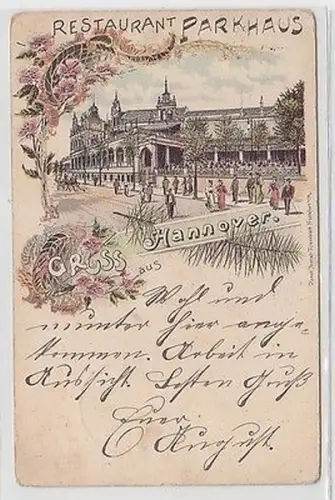 RESTAURANT PARKHAUS
Hannover.
GRUSS
aus
Wohl und
munter hier ange-
kommen. Arbeit in
Aussicht. Besten Gruß
Euer
August.